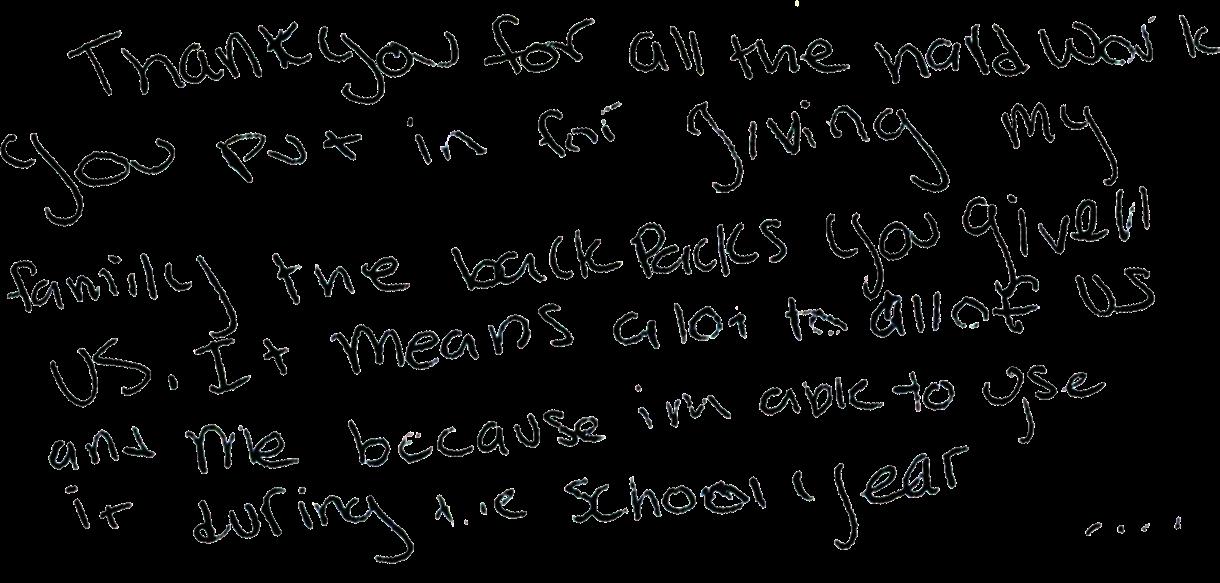 Thank you for all the hard work
you put in for giving my
family the back Packs you give
us. It means alot to all of us
and me because im able to use
it during the school year
....